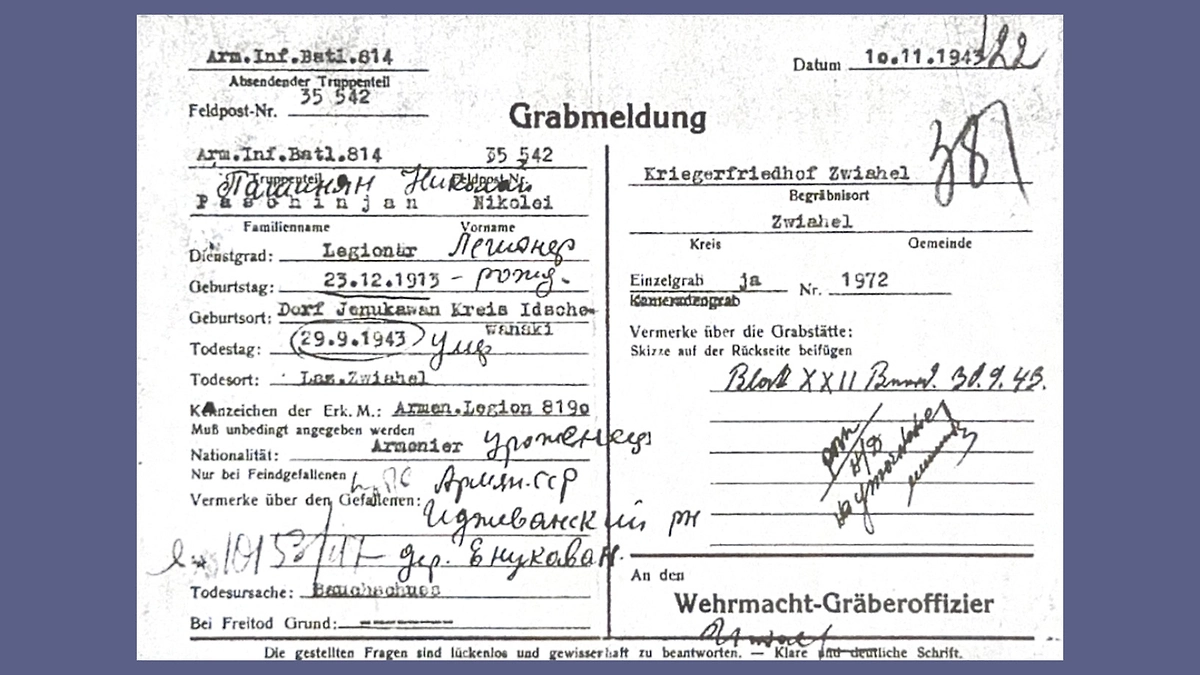 Arm.Inf.Batl.814
Absendender Truppenteil
Feldpost-Nr. 35 542
Datum 10.11.1943
122
Grabmeldung
381
Arm.Inf.Batl.814 35 542
Truppenteil Feldpost-Nr.
Пашинян Николай
Paschinjan Nikolei
Familienname Vorname
Dienstgrad: Legionär Легионер
Geburtstag: 23.12.1913 - рожд.
Geburtsort: Dorf Jenukawan Kreis Idsche-
wanski
Todestag: 29.9.1943 умер
Todesort: Laz.Zwiahel
Kennzeichen der Erk.M.: Armen.Legion 8190
Muß unbedingt angegeben werden
Nationalität: Armenier уроженец
Nur bei Feindgefallenen
Армян.ССР
Vermerke über den Gefallenen:
Иджеванский рн
дер. Енукаван.
Todesursache: Bauchschuss
Bei Freitod Grund: --------
Kriegerfriedhof Zwiahel
Begräbnisort
Zwiahel
Kreis Gemeinde
Einzelgrab ja Nr. 1972
Kameradengrab
Vermerke über die Grabstätte:
Skizze auf der Rückseite beifügen
Block XXII 30.9.43.
An den
Wehrmacht-Gräberoffizier
Die gestellten Fragen sind lückenlos und gewissenhaft zu beantworten. — Klare und deutliche Schrift.